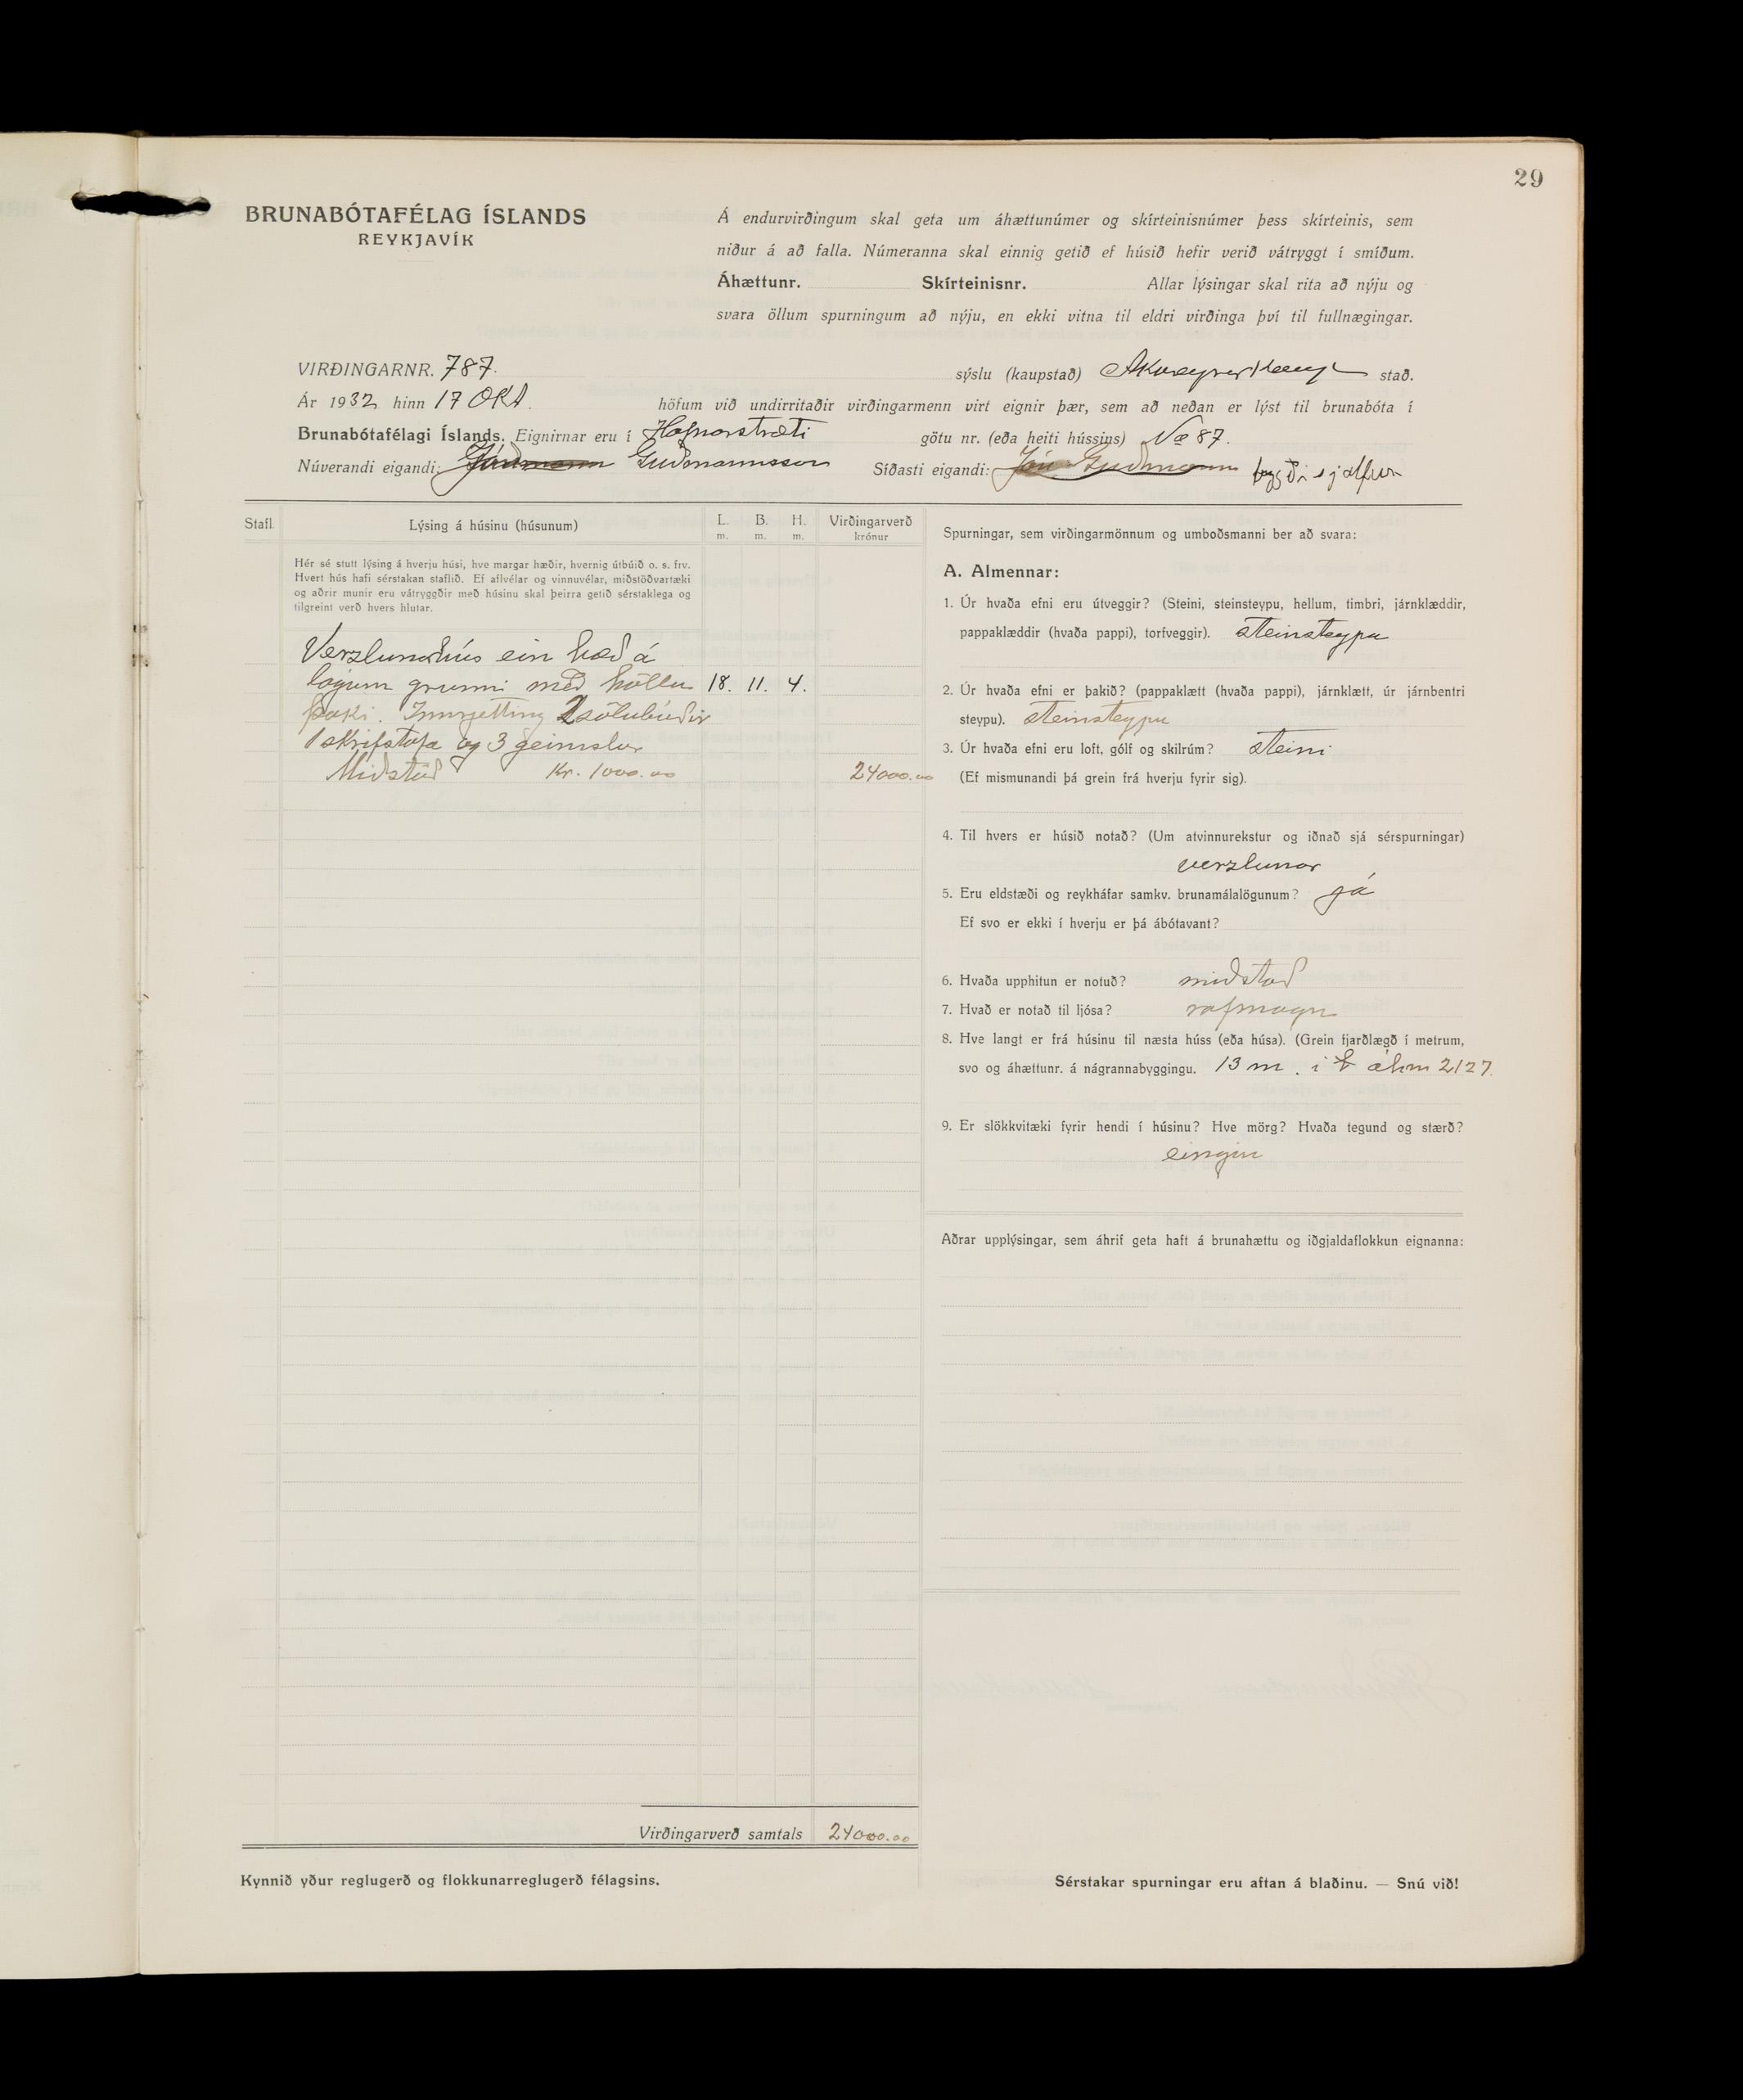 29
BRUNABÓTAFÉLAG ÍSLANDS
REYKJAVÍK
Á endurvirðingum skal geta um áhættunúmer og skírteinisnúmer þess skírteinis, sem
niður á að falla. Númeranna skal einnig getið ef húsið hefir verið vátryggt í smíðum.
Áhættunr. Skírteinisnr. Allar lýsingar skal rita að nýju og
svara öllum spurningum að nýju, en ekki vitna til eldri virðinga því til fullnægingar.
VIRÐINGARNR. 787. sýslu (kaupstað) stað.
Ár 1932 hinn 17 OKt. höfum við undirritaðir virðingarmenn virt eignir þær, sem að neðan er lýst til brunabóta í
Brunabótafélagi Íslands. Eignirnar eru í Hafnarstræti götu nr. (eða heiti hússins) No 87.
Núverandi eigandi: Guðmannsson Síðasti eigandi: Jón Guðmann byggði sjalfur
Stafl. Lýsing á húsinu (húsunum) L. m. B. m. H. m. Virðingarverð krónur
Hér sé stutt lýsing á hverju húsi, hve margar hæðir, hvernig útbúið o. s. frv.
Hvert hús hafi sérstakan staflið. Ef aflvélar og vinnuvélar, miðstöðvartæki
og aðrir munir eru vátryggðir með húsinu skal þeirra getið sérstaklega og
tilgreint verð hvers hlutar.
Verzlunarhús ein hæð á
lágum grunni með höllu 18. 11. 4.
þaki. Innrjetting 2 sölubúðir
1 skrifstofa og 3 geimslur
Miðstöð Kr. 1000.00 24000.00
Virðingarverð samtals 24000.00
Kynnið yður reglugerð og flokkunarreglugerð félagsins.
Spurningar, sem virðingarmönnum og umboðsmanni ber að svara:
A. Almennar:
1. Úr hvaða efni eru útveggir? (Steini, steinsteypu, hellum, timbri, járnklæddir,
pappaklæddir (hvaða pappi), torfveggir). steinsteypu
2. Úr hvaða efni er þakið? (pappaklætt (hvaða pappi), járnklætt, úr járnbentri
steypu). steinsteypu
3. Úr hvaða efni eru loft, gólf og skilrúm? steini
(Ef mismunandi þá grein frá hverju fyrir sig).
4. Til hvers er húsið notað? (Um atvinnurekstur og iðnað sjá sérspurningar)
verzlunar
5. Eru eldstæði og reykháfar samkv. brunamálalögunum? já
Ef svo er ekki í hverju er þá ábótavant?
6. Hvaða upphitun er notuð? miðstöð
7. Hvað er notað til ljósa? rafmagn
8. Hve langt er frá húsinu til næsta húss (eða húsa). (Grein fjarðlægð í metrum,
svo og áhættunr. á nágrannabyggingu. 13 m. í 2127.
9. Er slökkvitæki fyrir hendi í húsinu? Hve mörg? Hvaða tegund og stærð?
eingin
Aðrar upplýsingar, sem áhrif geta haft á brunahættu og iðgjaldaflokkun eignanna:
Sérstakar spurningar eru aftan á blaðinu. — Snú við!